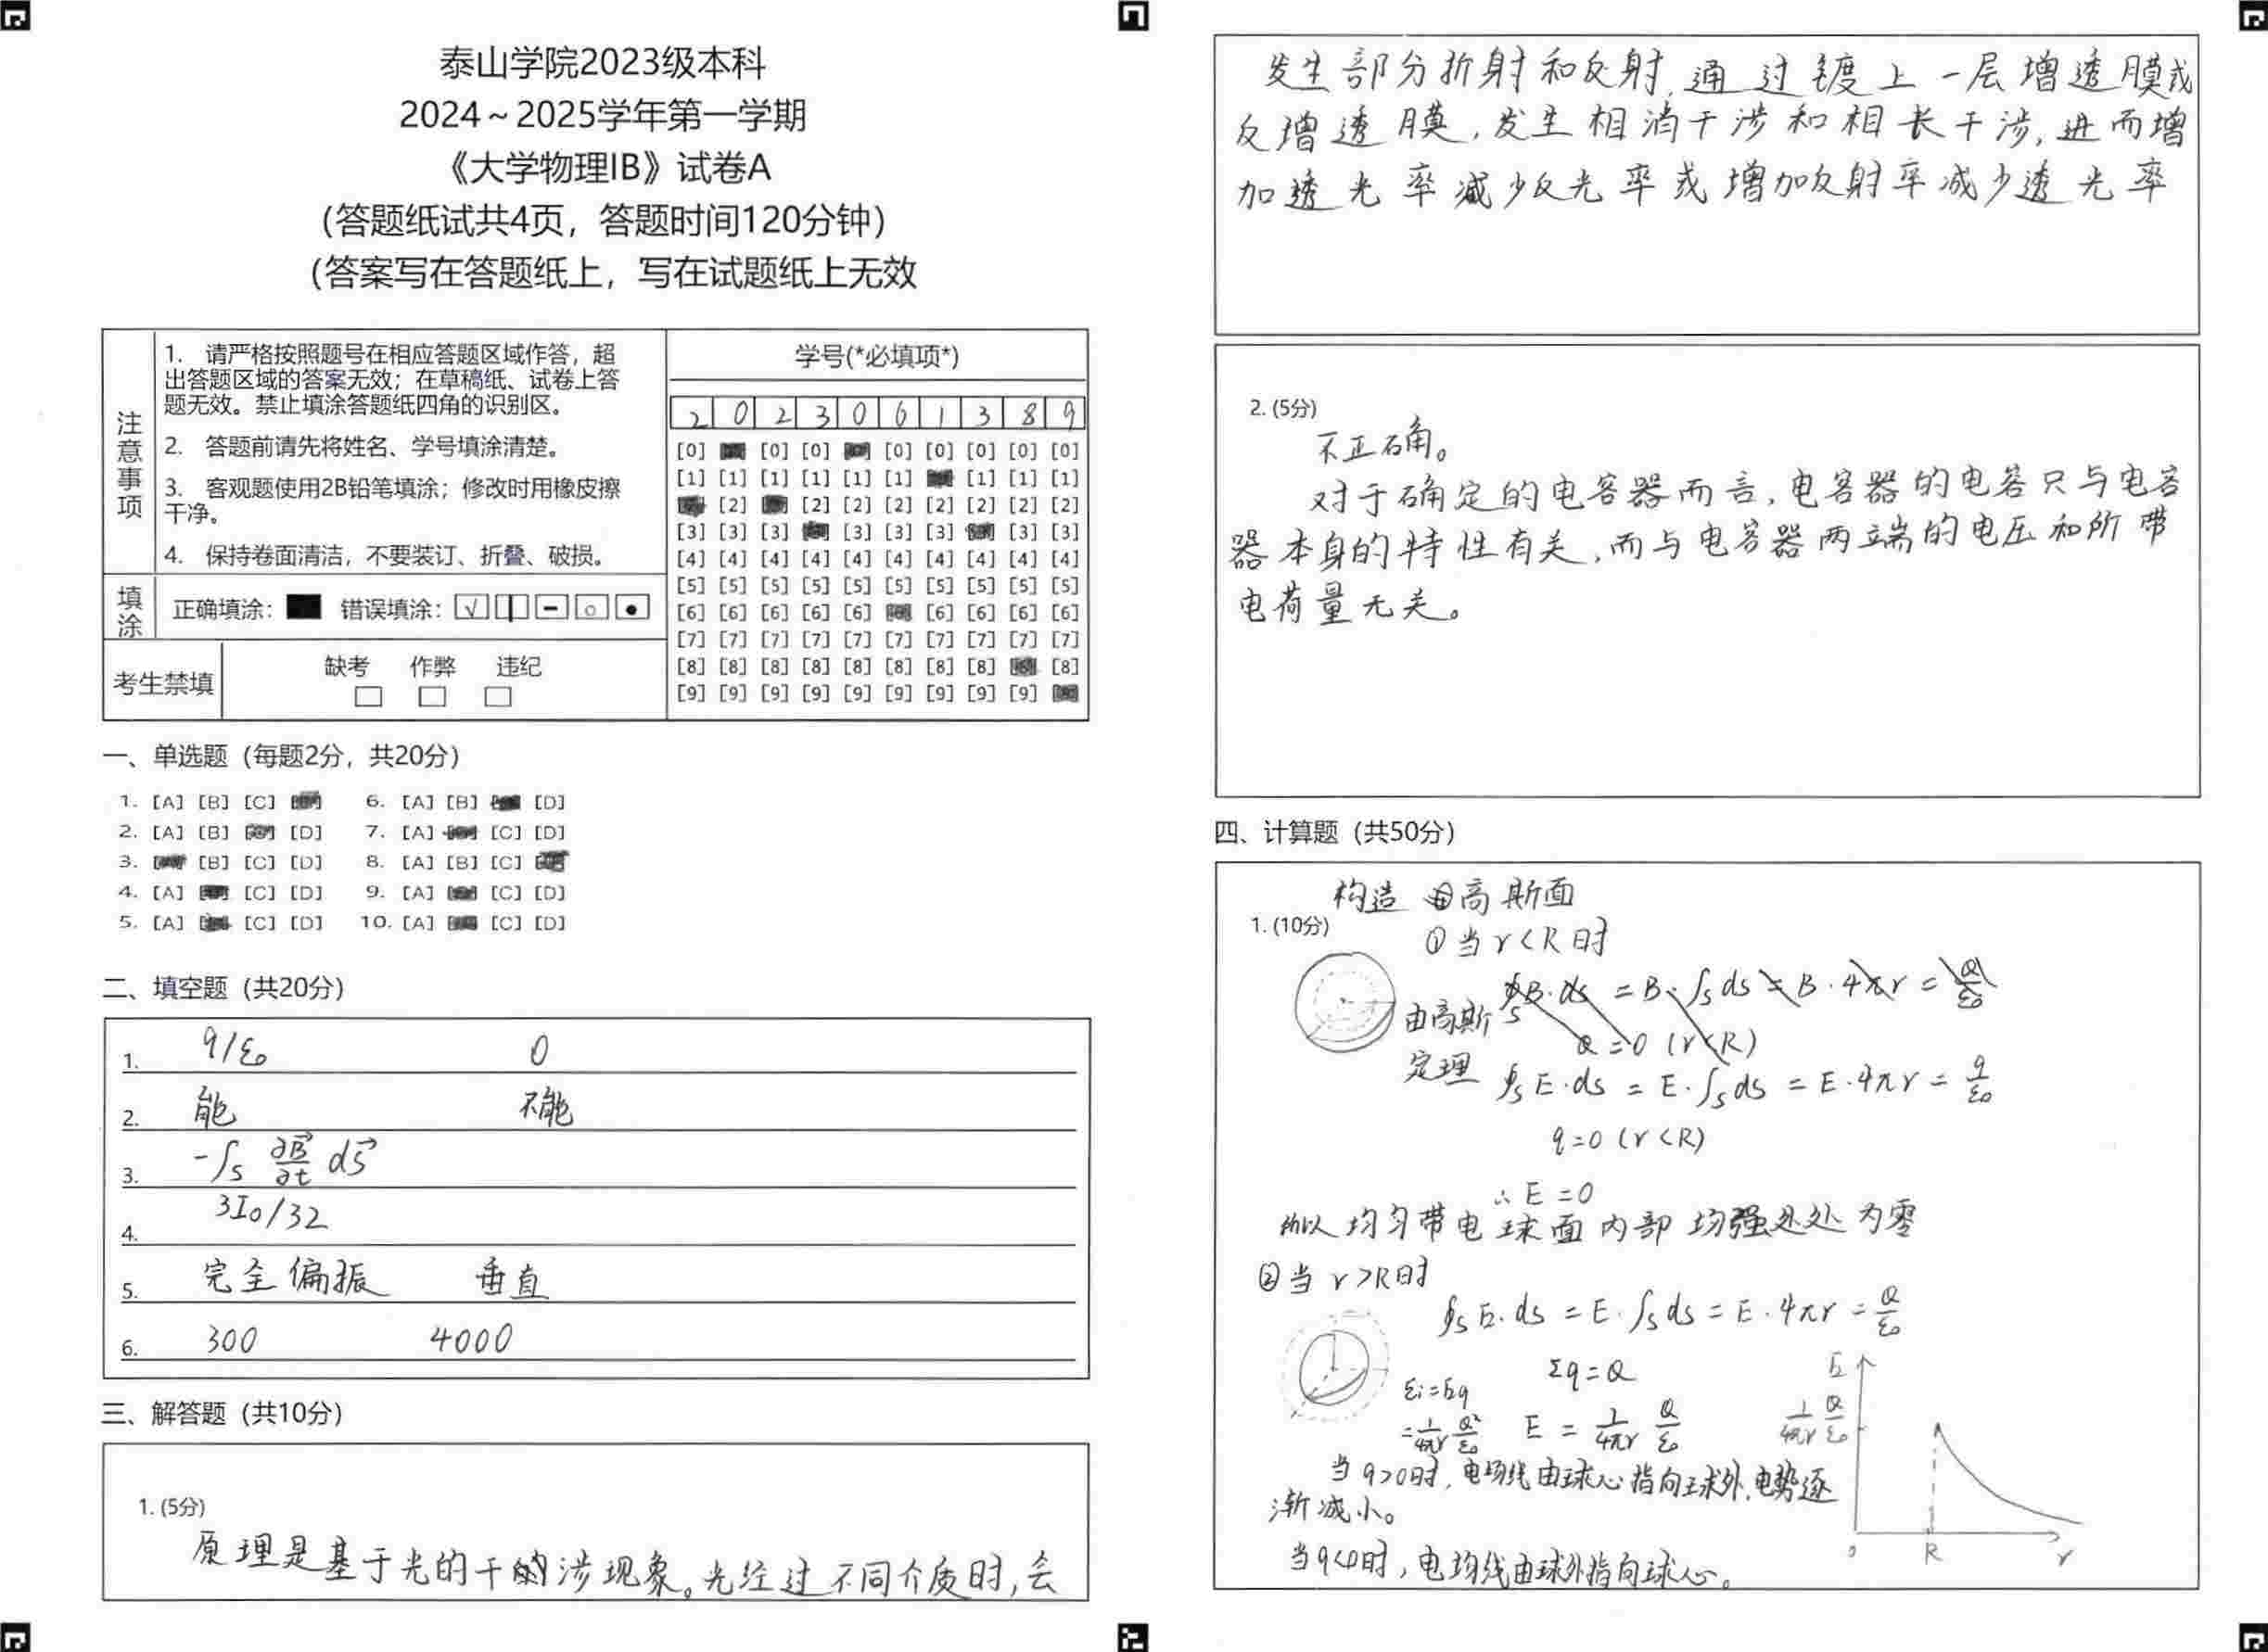 泰山学院2023级本科
2024～2025学年第一学期
《大学物理IB》试卷A
（答题纸试共4页，答题时间120分钟）
（答案写在答题纸上，写在试题纸上无效
注意事项
1. 请严格按照题号在相应答题区域作答，超
出答题区域的答案无效；在草稿纸、试卷上答
题无效。禁止填涂答题纸四角的识别区。
2. 答题前请先将姓名、学号填涂清楚。
3. 客观题使用2B铅笔填涂；修改时用橡皮擦
干净。
4. 保持卷面清洁，不要装订、折叠、破损。
填涂
正确填涂： 错误填涂：
考生禁填
缺考 作弊 违纪
学号(*必填项*)
2 0 2 3 0 6 1 3 8 9
[0] [0] [0] [0] [0] [0] [0] [0]
[1] [1] [1] [1] [1] [1] [1] [1] [1]
[2] [2] [2] [2] [2] [2] [2] [2]
[3] [3] [3] [3] [3] [3] [3] [3]
[4] [4] [4] [4] [4] [4] [4] [4] [4] [4]
[5] [5] [5] [5] [5] [5] [5] [5] [5] [5]
[6] [6] [6] [6] [6] [6] [6] [6] [6]
[7] [7] [7] [7] [7] [7] [7] [7] [7] [7]
[8] [8] [8] [8] [8] [8] [8] [8] [8]
[9] [9] [9] [9] [9] [9] [9] [9] [9]
一、单选题（每题2分，共20分）
1. [A] [B] [C] 6. [A] [B] [D]
2. [A] [B] [D] 7. [A] [C] [D]
3. [B] [C] [D] 8. [A] [B] [C]
4. [A] [C] [D] 9. [A] [C] [D]
5. [A] [C] [D] 10. [A] [C] [D]
二、填空题（共20分）
1. q/ε₀ 0
2. 能 不能
3. -∫s ∂B⃗/∂t dS⃗
4. 3I₀/32
5. 完全偏振 垂直
6. 300 4000
三、解答题（共10分）
1. (5分)
原理是基于光的干涉现象。光经过不同介质时，会
发生部分折射和反射，通过镀上一层增透膜或
反增透膜，发生相消干涉和相长干涉，进而增
加透光率减少反光率或增加反射率减少透光率
2. (5分)
不正确。
对于确定的电容器而言，电容器的电容只与电容
器本身的特性有关，而与电容器两端的电压和所带
电荷量无关。
四、计算题（共50分）
构造 高斯面
1. (10分)
①当r<R时
∮s B·ds = B·∫s ds = B·4πr = Q/ε₀
由高斯
Q=0 (r<R)
定理 ∮s E·ds = E·∫s ds = E·4πr = q/ε₀
q=0 (r<R)
∴E=0
所以均匀带电球面内部场强处处为零
②当r>R时
∮s E·ds = E·∫s ds = E·4πr = Q/ε₀
Σq=Q
=1/4πr Q²/ε₀ E = 1/4πr Q/ε₀
E
1/4πr Q/ε₀
当q>0时，电场线由球心指向球外，电势逐
渐减小。
当q<0时，电场线由球外指向球心。
0 R r